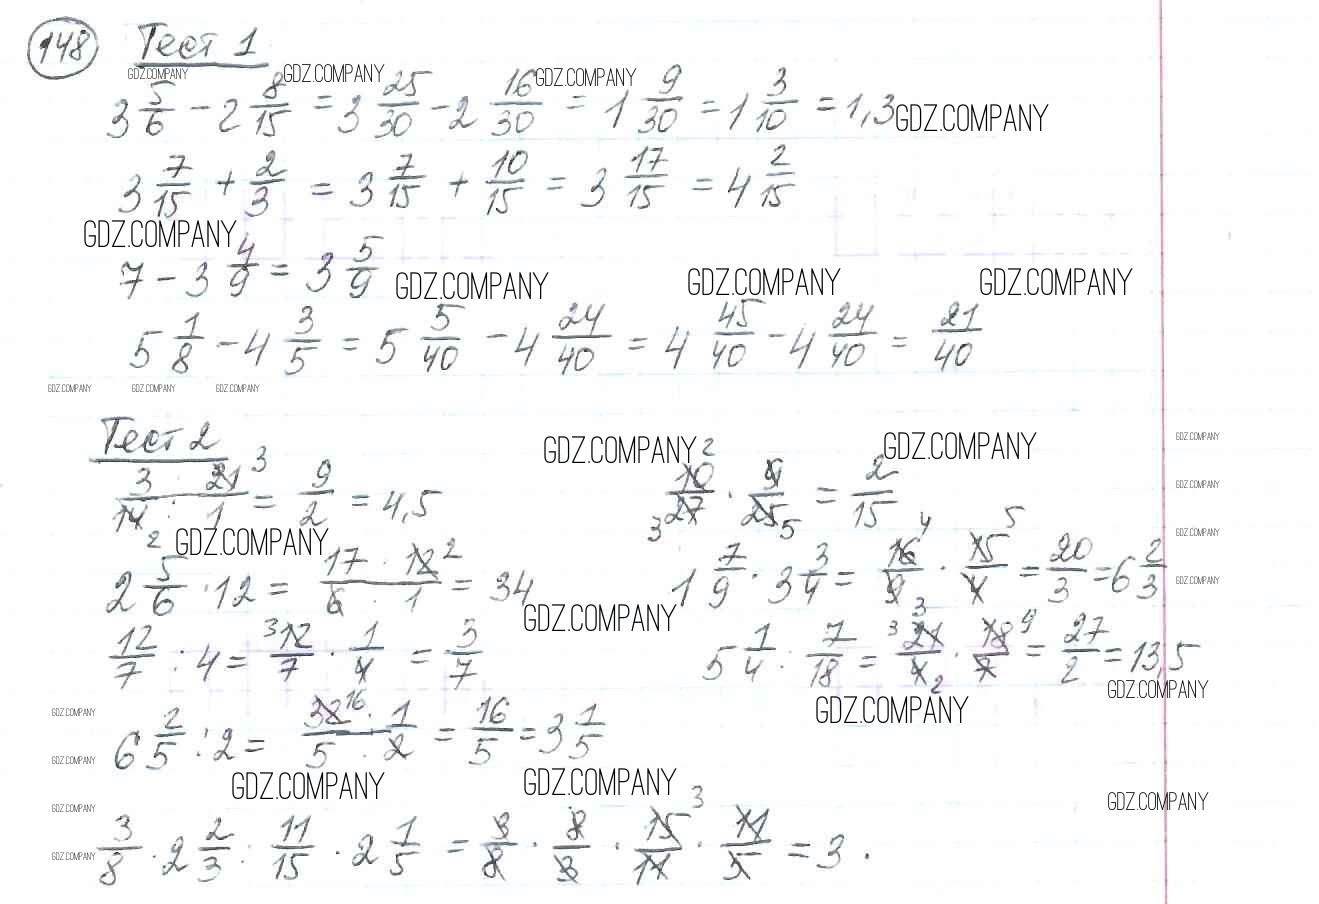 148 Тест 1
GDZ.COMPANY GDZ.COMPANY GDZ.COMPANY
3 5/6 - 2 8/15 = 3 25/30 - 2 16/30 = 1 9/30 = 1 3/10 = 1,3 GDZ.COMPANY
3 7/15 + 2/3 = 3 7/15 + 10/15 = 3 17/15 = 4 2/15
GDZ.COMPANY
7 - 3 4/9 = 3 5/9 GDZ.COMPANY GDZ.COMPANY GDZ.COMPANY
5 1/8 - 4 3/5 = 5 5/40 - 4 24/40 = 4 45/40 - 4 24/40 = 21/40
GDZ.COMPANY GDZ.COMPANY GDZ.COMPANY
Тест 2
GDZ.COMPANY GDZ.COMPANY GDZ.COMPANY
3/14 · 21/1 = 9/2 = 4,5 10/27 · 9/25 = 2/15 GDZ.COMPANY
GDZ.COMPANY GDZ.COMPANY
2 5/6 · 12 = 17 · 12/6 · 1 = 34 1 7/9 · 3 3/4 = 16/9 · 15/4 = 20/3 = 6 2/3 GDZ.COMPANY
GDZ.COMPANY
12/7 : 4 = 12/7 · 1/4 = 3/7 5 1/4 : 7/18 = 21/4 · 18/7 = 27/2 = 13,5
GDZ.COMPANY GDZ.COMPANY GDZ.COMPANY
6 2/5 : 2 = 32 · 1/5 · 2 = 16/5 = 3 1/5
GDZ.COMPANY
GDZ.COMPANY GDZ.COMPANY GDZ.COMPANY
GDZ.COMPANY
3/8 · 2 2/3 : 11/15 · 2 1/5 = 3/8 · 8/3 · 15/11 · 11/5 = 3.
GDZ.COMPANY